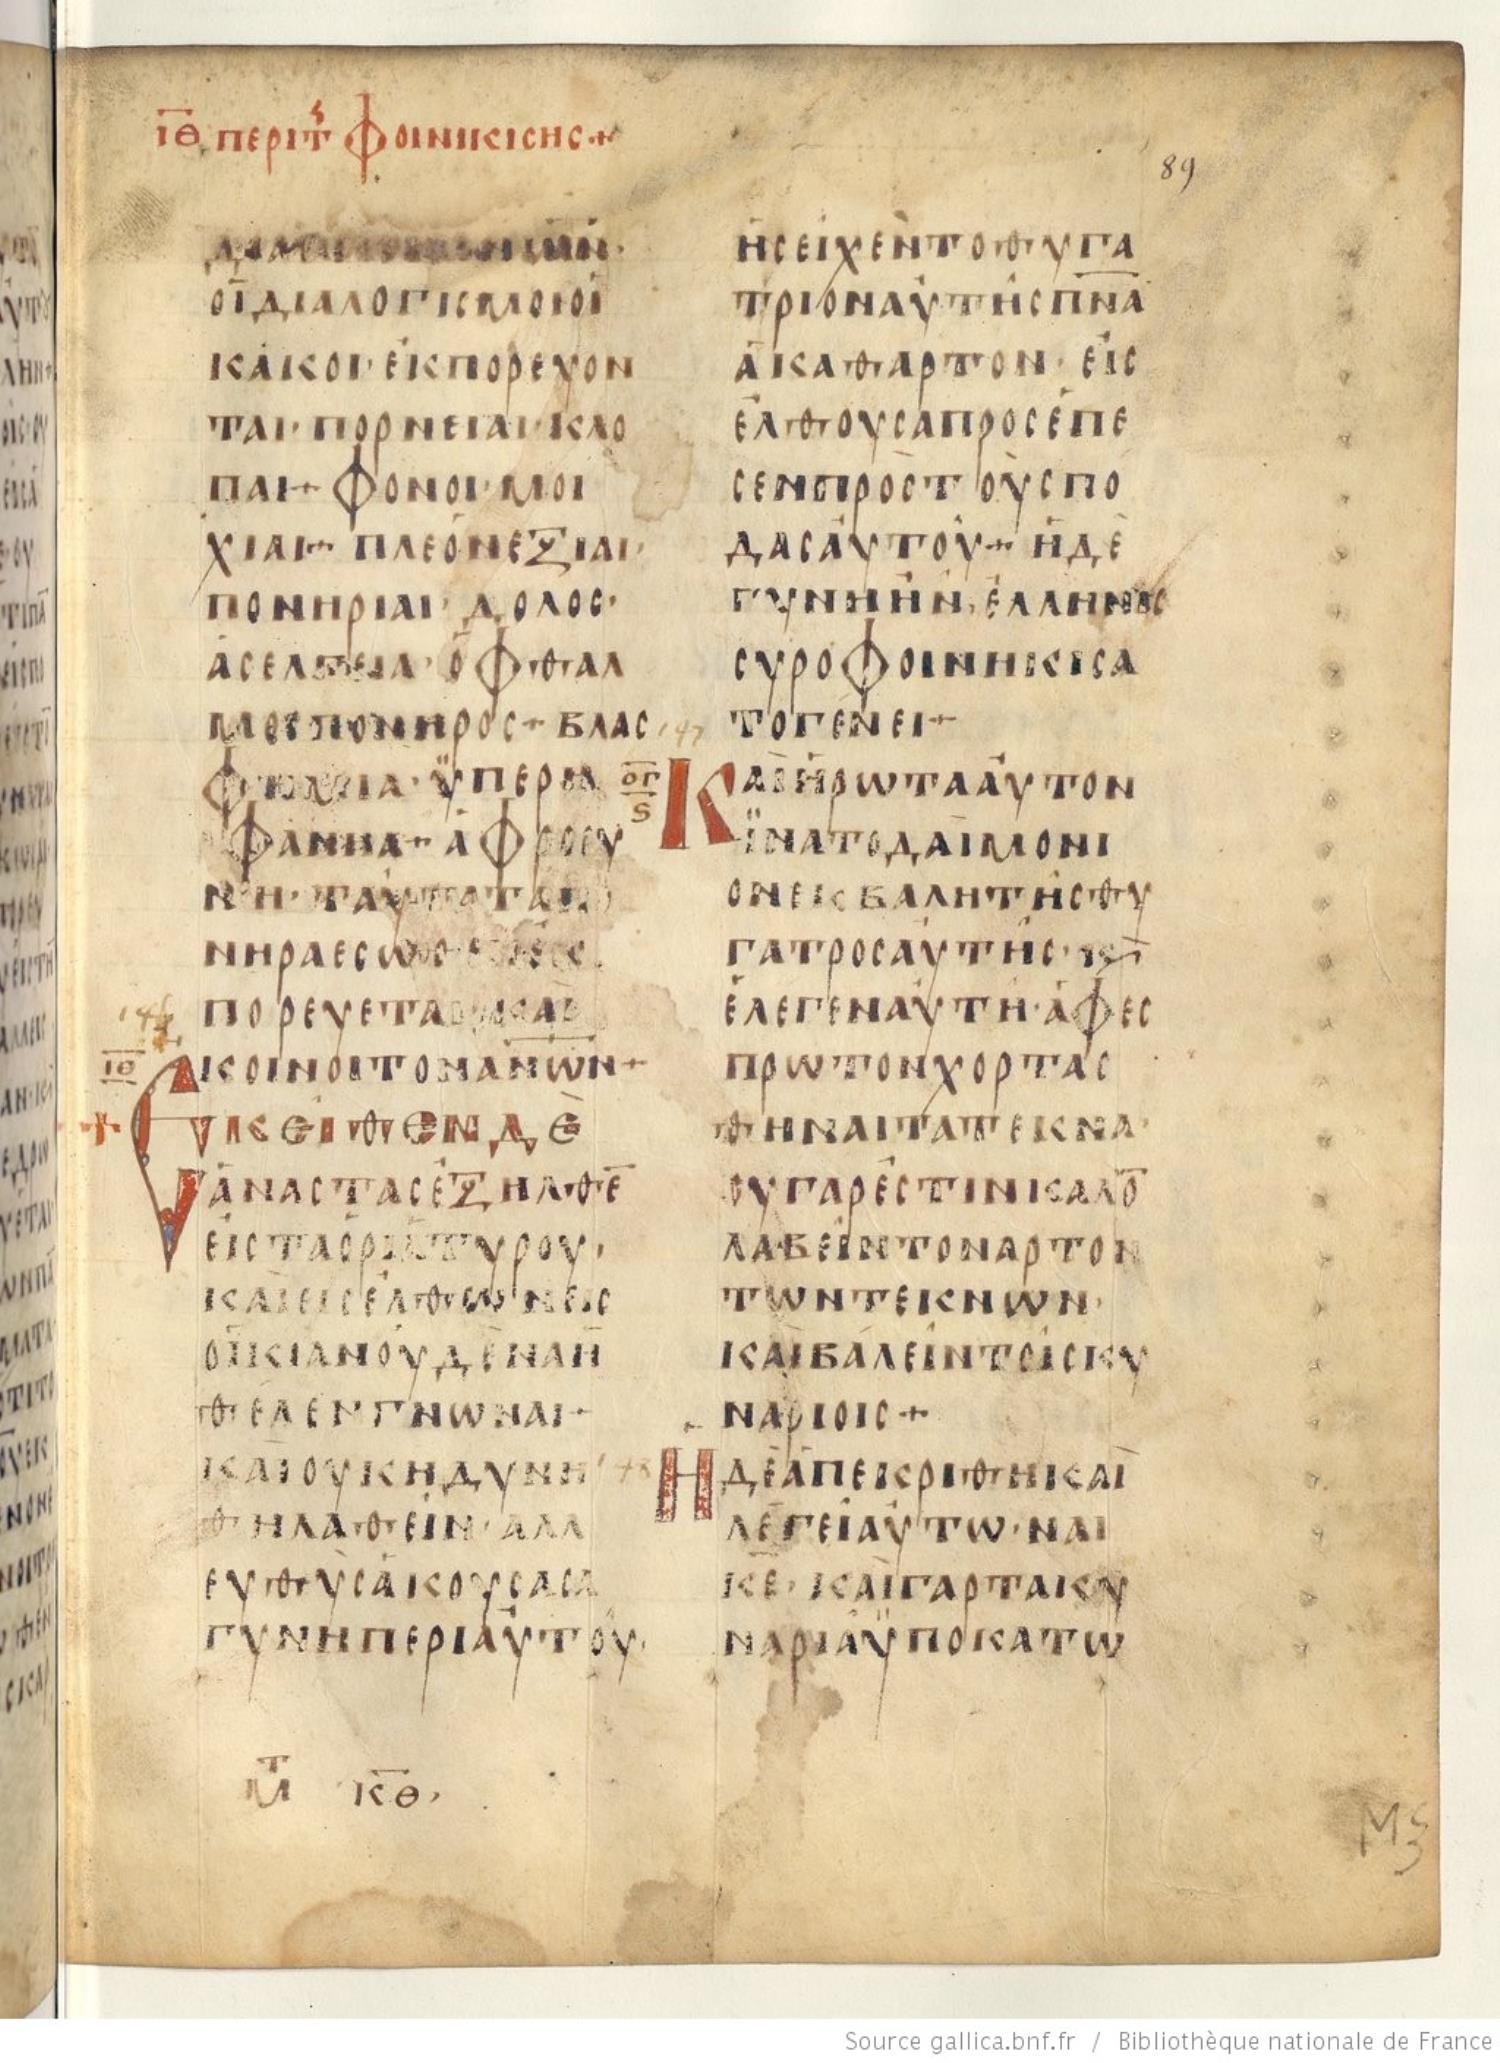 ΙΘ ΠΕΡΙ Τ ΦΟΙΝΙΚΙСΗС+
89
ΟΪΔΙΑΛΟΓΙСΜΟΙΟΙ
ΚΑΚΟΙ· ΕΚΠΟΡΕΥΟΝ
ΤΑΙ· ΠΟΡΝΕΙΑΙ· ΚΛΟ
ΠΑΙ+ ΦΟΝΟΙ· ΜΟΙ
ΧΙΑΙ+ ΠΛΕΟΝΕΞΙΑΙ·
ΠΟΝΗΡΙΑΙ· ΔΟΛΟС·
ΑСΕΛΓΕΙΑ· ΟΦΘΑΛ
ΜΟС ΠΟΝΗΡΟС+ ΒΛΑС
ΦΗΜΙΑ· ΫΠΕΡΗ
ΦΑΝΗΑ+ ΑΦΡΟСΥ
ΝΗ· ΤΑΥΤΑΤΑΠΟ
ΝΗΡΑΕСΩΘΕΝΕΚ
ΠΟΡΕΥΕΤΑΙ ΚΑΙ
146
ΙΘ
ΚΟΙΝΟΙΤΟΝΑΝΩΝ+
+ ΕΚΕΙΘΕΝΔΕ
ΑΝΑСΤΑСΕΞΗΛΘΕ
ΕΙСΤΑΟΡΙΑΤΥΡΟΥ,
ΚΑΙΕΙСΕΛΘΩΝΕΙС
ΟΪΚΙΑΝΟΥΔΕΝΑΗ
ΘΕΛΕΝΓΝΩΝΑΙ+
ΚΑΙΟΥΚΗΔΥΝΗ
ΘΗΛΑΘΕΙΝ· ΑΛΛ
ΕΥΘΥСΑΚΟΥСΑСΑ
ΓΥΝΗΠΕΡΙΑΥΤΟΥ,
ΗСΕΙΧΕΝΤΟΘΥΓΑ
ΤΡΙΟΝΑΥΤΗСΠΝΑ
ΑΚΑΘΑΡΤΟΝ· ΕΙС
ΕΛΘΟΥСΑΠΡΟСΕΠΕ
СΕΝΠΡΟСΤΟΥСΠΟ
ΔΑСΑΥΤΟΥ+ ΗΔΕ
ΓΥΝΗΗΝ, ΕΛΛΗΝΙС
СΥΡΟΦΟΙΝΗΚΙСΑ
ΤΟΓΕΝΕΙ+
147
ΟΓ
S
ΚΑΙΗΡΩΤΑΑΥΤΟΝ
ΪΝΑΤΟΔΑΙΜΟΝΙ
ΟΝΕΚΒΑΛΗΤΗСΘΥ
ΓΑΤΡΟСΑΥΤΗС· Κ
ΕΛΕΓΕΝΑΥΤΗ· ΑΦΕС
ΠΡΩΤΟΝΧΟΡΤΑС
ΘΗΝΑΙΤΑΤΕΚΝΑ·
ΟΥΓΑΡΕСΤΙΝΚΑΛΟ̅
ΛΑΒΕΙΝΤΟΝΑΡΤΟΝ
ΤΩΝΤΕΚΝΩΝ·
ΚΑΙΒΑΛΕΙΝΤΟΙСΚΥ
ΝΑΡΙΟΙС+
148
ΗΔΕΑΠΕΚΡΙΘΗΚΑΙ
ΛΕΓΕΙΑΥΤΩ· ΝΑΙ
ΚΕ· ΚΑΙΓΑΡΤΑΚΥ
ΝΑΡΙΑΫΠΟΚΑΤΩ
Μ Τ ΚΘ,
Source gallica.bnf.fr / Bibliothèque nationale de France